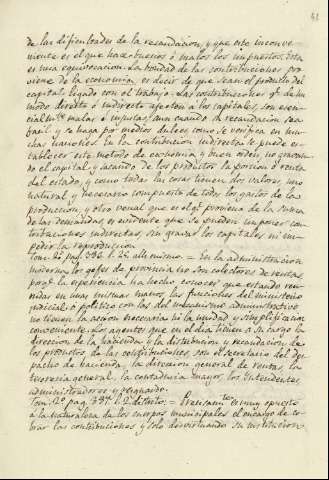 de las dificultades de la recaudacion, y que este inconve-
niente es el que hace buenos ó malos los impuestos. Esta
es una equivocacion. La bondad de las contribuciones pro-
viene de la economia, es decir de que sean el producto del
capital ligado con el trabajo. Las contribuciones qe. de un
modo directo ó indirecto afecten a los capitales, son esen-
cialmte. malas é injustas, aun cuando la recaudacion sea
facil y se haga por medios dulces, como se verifica en mu-
chas naciones. En la contribucion indirecta se puede es-
tablecer este metodo de economia y buen orden, no gravan-
do el capital y sacando de los productos la porcion ó renta
del estado, y como todas las cosas tienen dos valores, uno
natural y necesario compuesto de todos los gastos de la
produccion, y otro venal que es el qe. proviene de la suma
de las demandas, es evidente que se pueden imponer con-
tribuciones indirectas, sin gravar los capitales ni im-
pedir la reproduccion.
tom. 2º. pag. 336. l. 24. alli mismo. = En la administracion
moderna los gefes de provincia no son colectores de rentas,
porqe. la esperiencia ha hecho conocer que estando reu-
nidas en unas mismas manos, las funciones del ministerio
judicial ó politico con las del mecanismo administrativo
no tienen la accion necesaria ni la unidad y simplificacion
conveniente. Los agentes que en el dia tienen a su cargo la
direccion de la hacienda y la distribucion y recaudacion de
los productos de las contribuciones, son el secretario del des-
pacho de hacienda, la direccion general de rentas, la
tesoreria general, la contaduria mayor, los intendentes,
administradores y
tom. 2º. pag. 337. l. 2. = Precisamte. es muy opuesto
á la naturaleza de los cuerpos municipales el encargo de co-
brar las contribuciones y solo desvirtuando su institucion